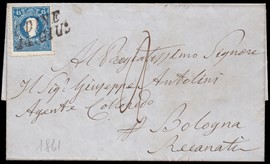 Al Pregiatissimo Signore
Il Sig. Giuseppe Antolini
Agente Colaredo
Bologna
Recanati
1861